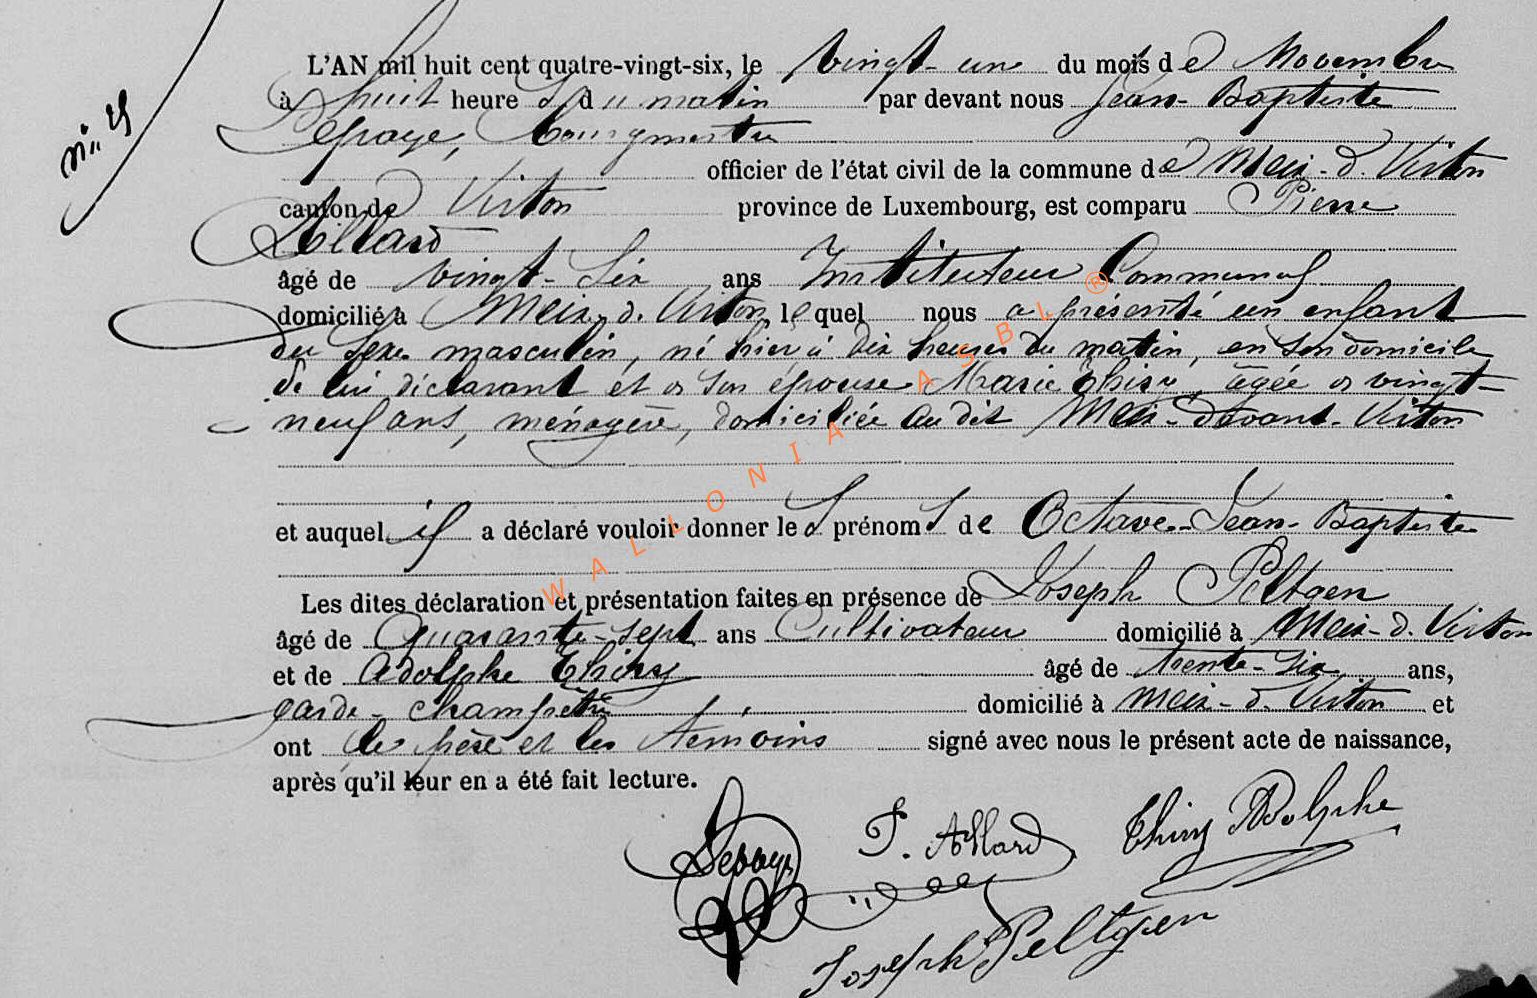 L'AN mil huit cent quatre-vingt-six, le vingt-un du mois de Novembre
à huit heures du matin par devant nous Jean-Baptiste
Lepage, bourgmestre
officier de l'état civil de la commune de Meix-d. Virton
canton de Virton province de Luxembourg, est comparu Pierre
Allard
âgé de vingt-six ans Instituteur Communal
domicilié à Meix-d. Virton, lequel nous a présenté un enfant
du sexe masculin, né hier à dix heures du matin, en son domicile
de lui déclarant et de son épouse Marie Thiry, âgée de vingt-
neuf ans, ménagère, domiciliée au dit Meix-devant-Virton
et auquel il a déclaré vouloir donner les prénoms de Octave-Jean-Baptiste
Les dites déclaration et présentation faites en présence de Joseph Peltgen
âgé de quarante-sept ans Cultivateur domicilié à Meix-d. Virton
et de Adolphe Thiry âgé de trente-six ans,
garde-champêtre domicilié à Meix-d. Virton et
ont le père et les témoins signé avec nous le présent acte de naissance,
après qu'il leur en a été fait lecture.
P. Allard Thiry Adolphe
Joseph Peltgen
WALLONIA ASBL ®